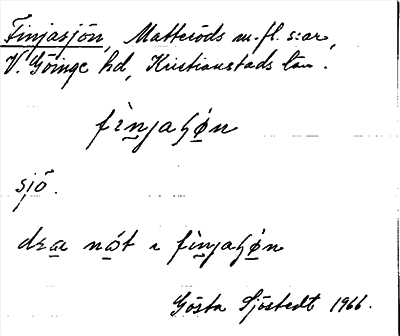 Finjasjön, Matteröds m.fl. s:ar,
V. Göinge hd, Kristianstads län.
fìnjaʃǿn
sjö.
dra nót ı fìnjaʃǿn
Gösta Sjöstedt 1966.